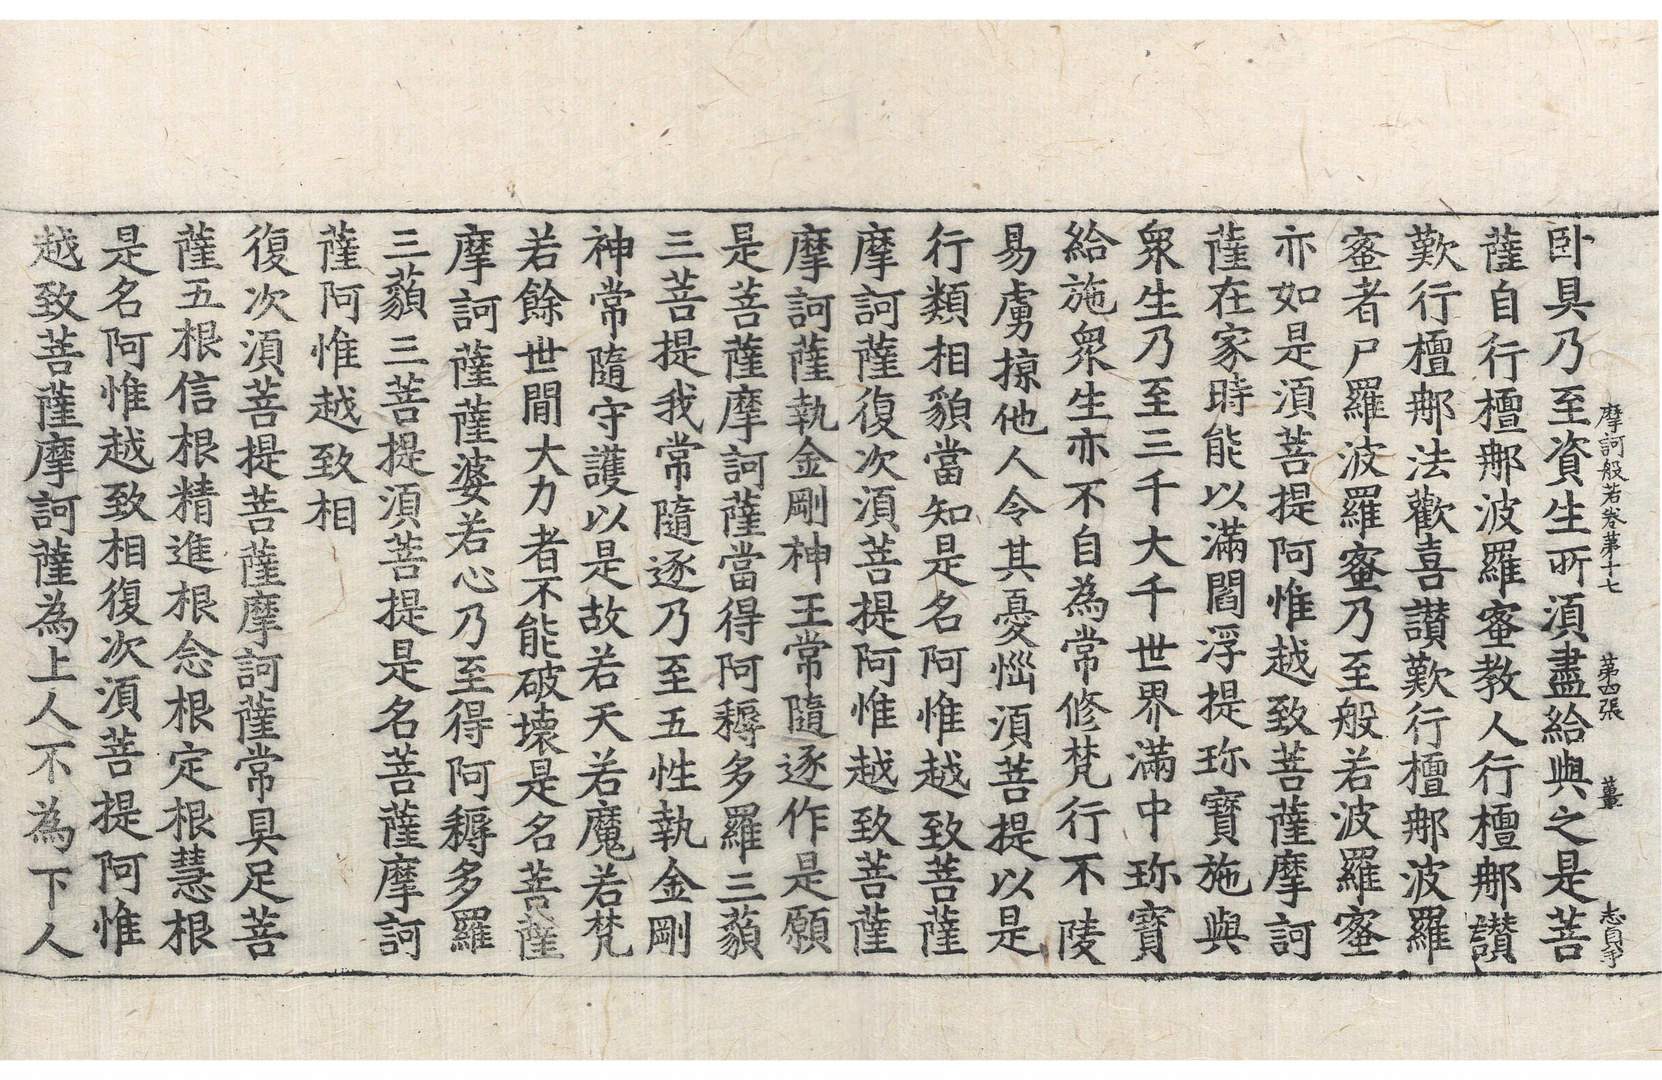 摩訶般若卷第十七　第四張　薑　志自爭
卧具乃至資生所須盡給與之是菩
薩自行檀那波羅蜜教人行檀那讃
歎行檀那法歡喜讃歎行檀那波羅
蜜者尸羅波羅蜜乃至般若波羅蜜
亦如是須菩提阿惟越致菩薩摩訶
薩在家時能以滿閻浮提珎寶施與
衆生乃至三千大千世界滿中珎寶
給施衆生亦不自為常修梵行不陵
易虜掠他人令其憂惱須菩提以是
行類相貌當知是名阿惟越致菩薩
摩訶薩復次須菩提阿惟越致菩薩
摩訶薩執金剛神王常隨逐作是願
是菩薩摩訶薩當得阿耨多羅三藐
三菩提我常隨逐乃至五性執金剛
神常隨守護以是故若天若魔若梵
若餘世閒大力者不能破壞是名菩薩
摩訶薩薩婆若心乃至得阿耨多羅
三藐三菩提須菩提是名菩薩摩訶
薩阿惟越致相
復次須菩提菩薩摩訶薩常具足菩
薩五根信根精進根念根定根慧根
是名阿惟越致相復次須菩提阿惟
越致菩薩摩訶薩為上人不為下人